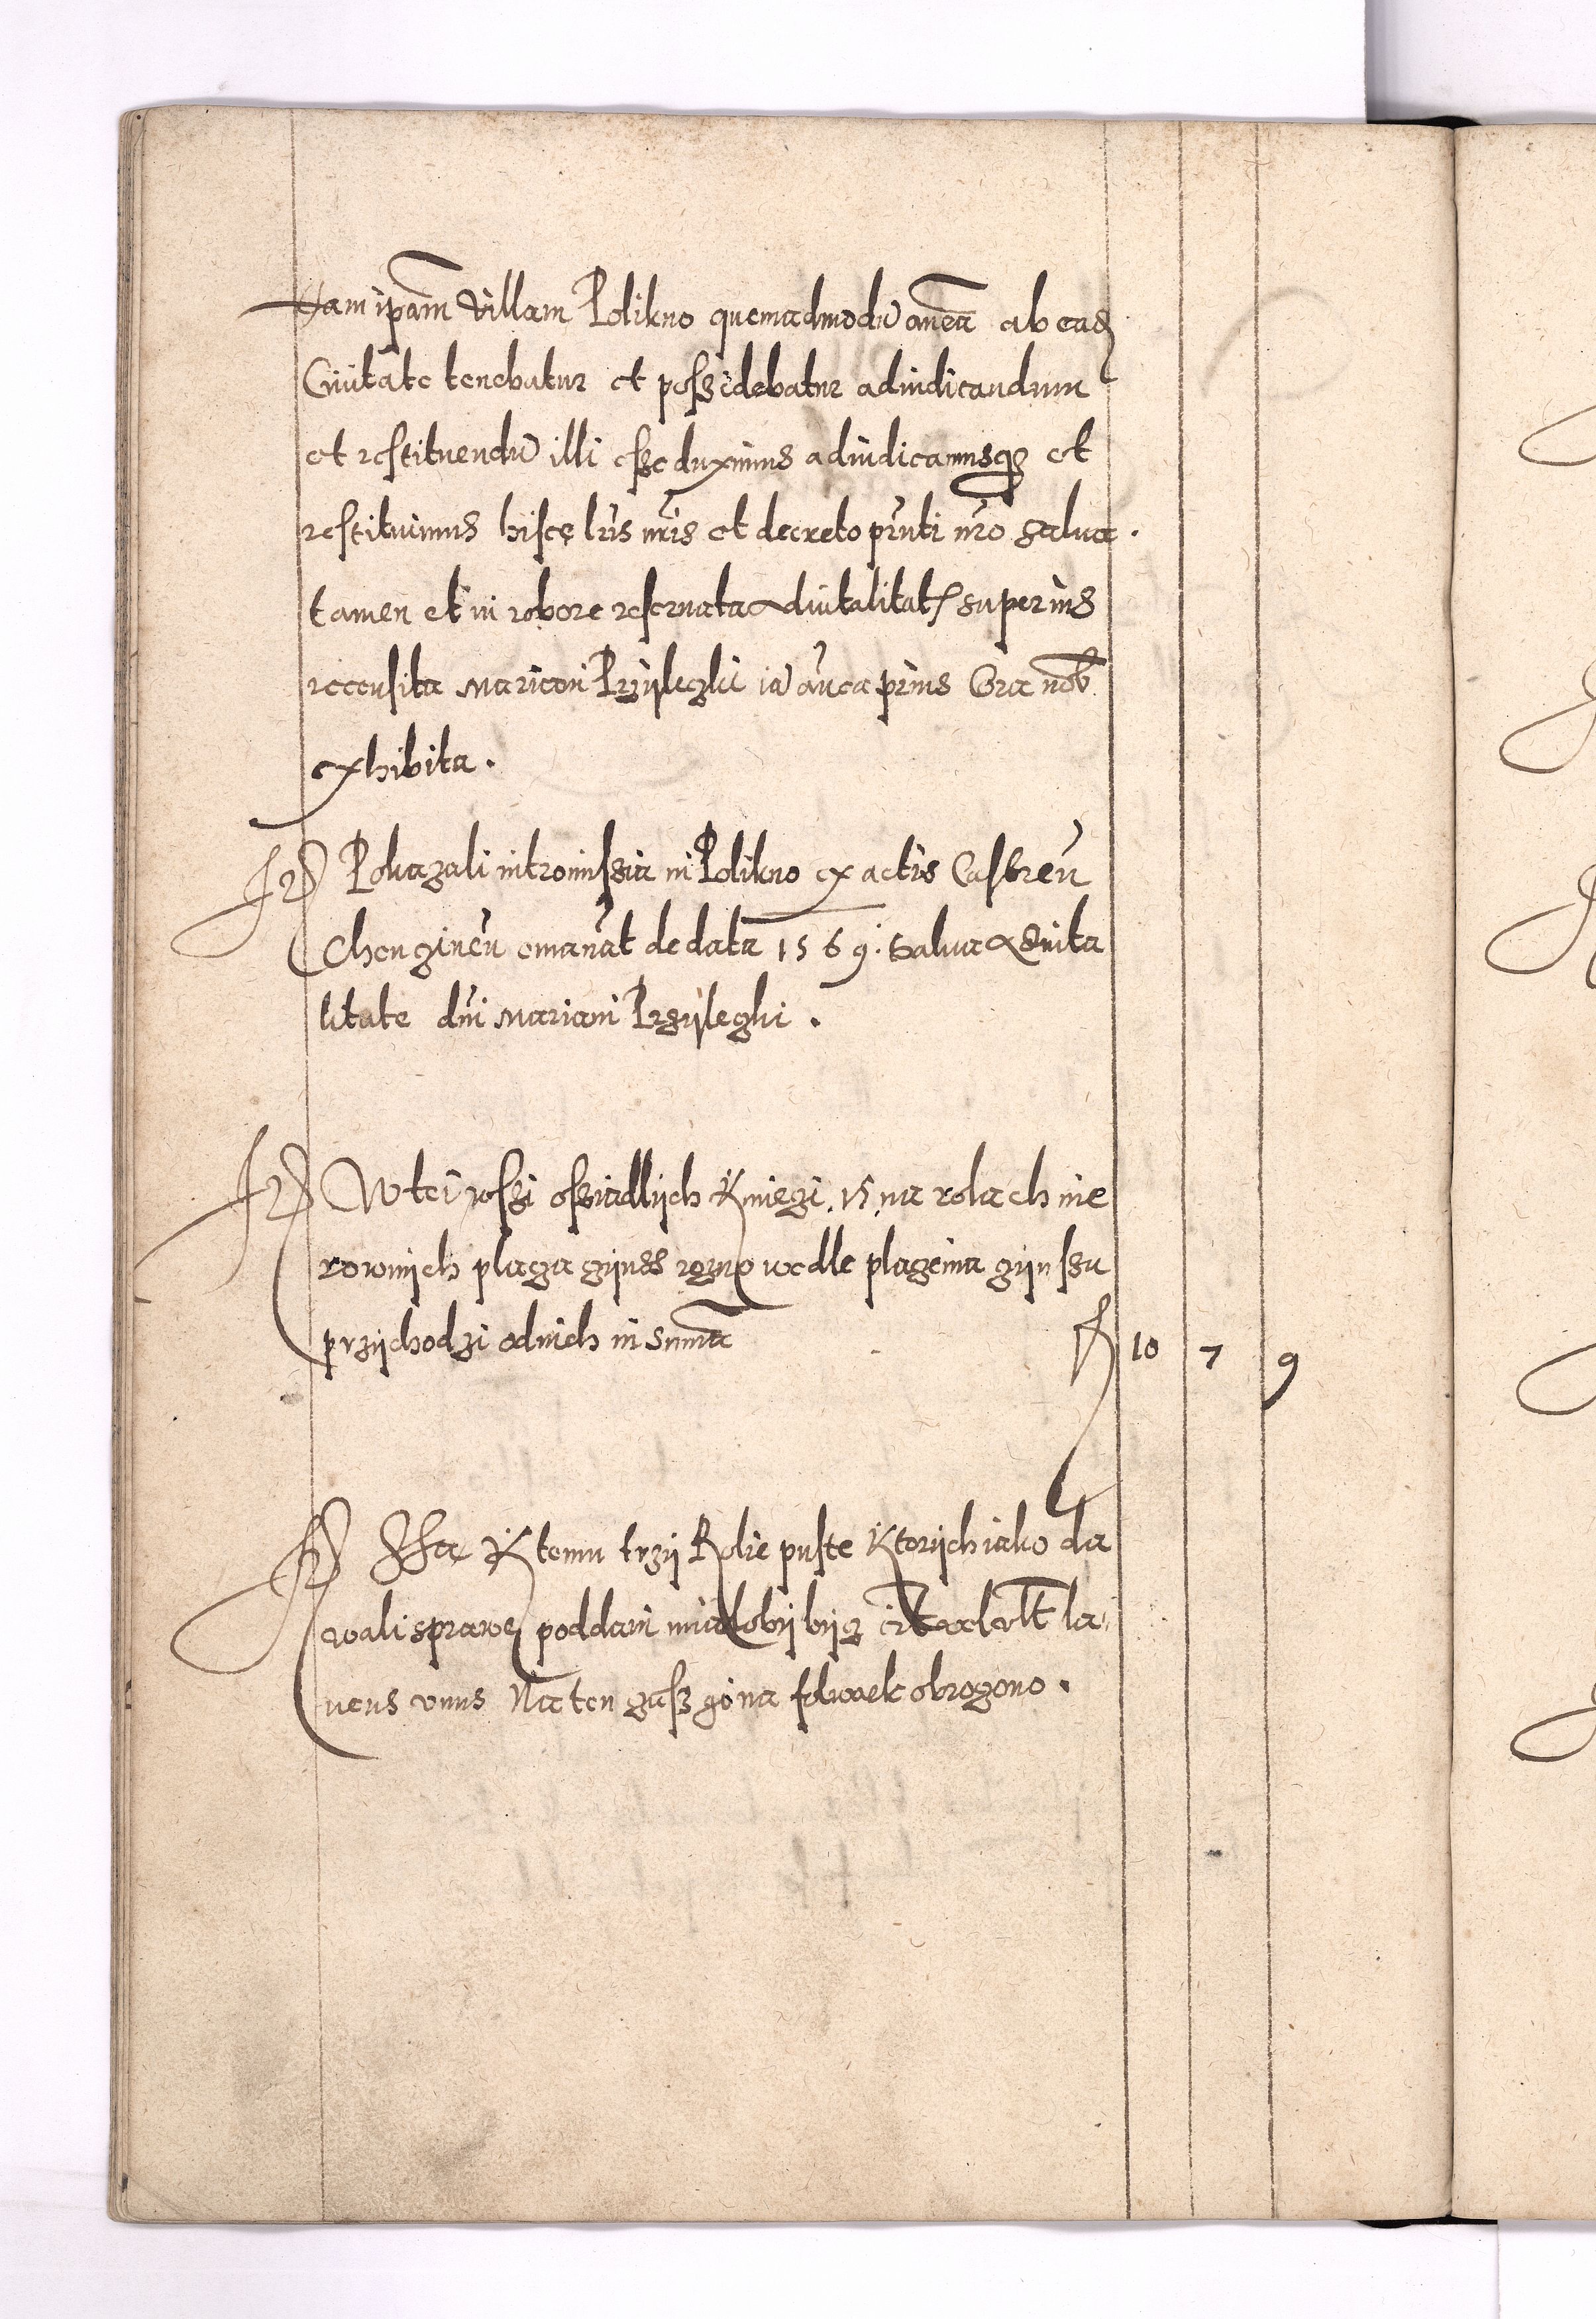 eam ipam villam Polikno quemadmodu antea ab ead
Ciuitate tenebatur et possidebatur adiudicandum
et restituendu illi esse duximus adiudicamusq et
restituimus hisce lris nris et decreto pnti nro salua.
tamen et in robore reseruata aduitalitate superius
recensita Mariani Przÿleczki ia antea prius Cora nob
exhibita.
It Pokazali intromissia in Polikno ex actis Castren
Chenzinen emanat de data 1569. Salua aduita
litate dni Mariani Przÿleczki.
It W tei wssi ossiadlÿch Kmiezi .15. na rolach nie
rownÿch placza czÿnss rozno wedle placzenia czÿnssu
przÿchodzi od nich in Summa f 10 7 9
It Ssa K temu trzÿ Rolie puste Ktorÿch iako da
wali sprawe poddani mialobÿ bÿcz la
neus unus Na ten czass go na folwark obroczono.